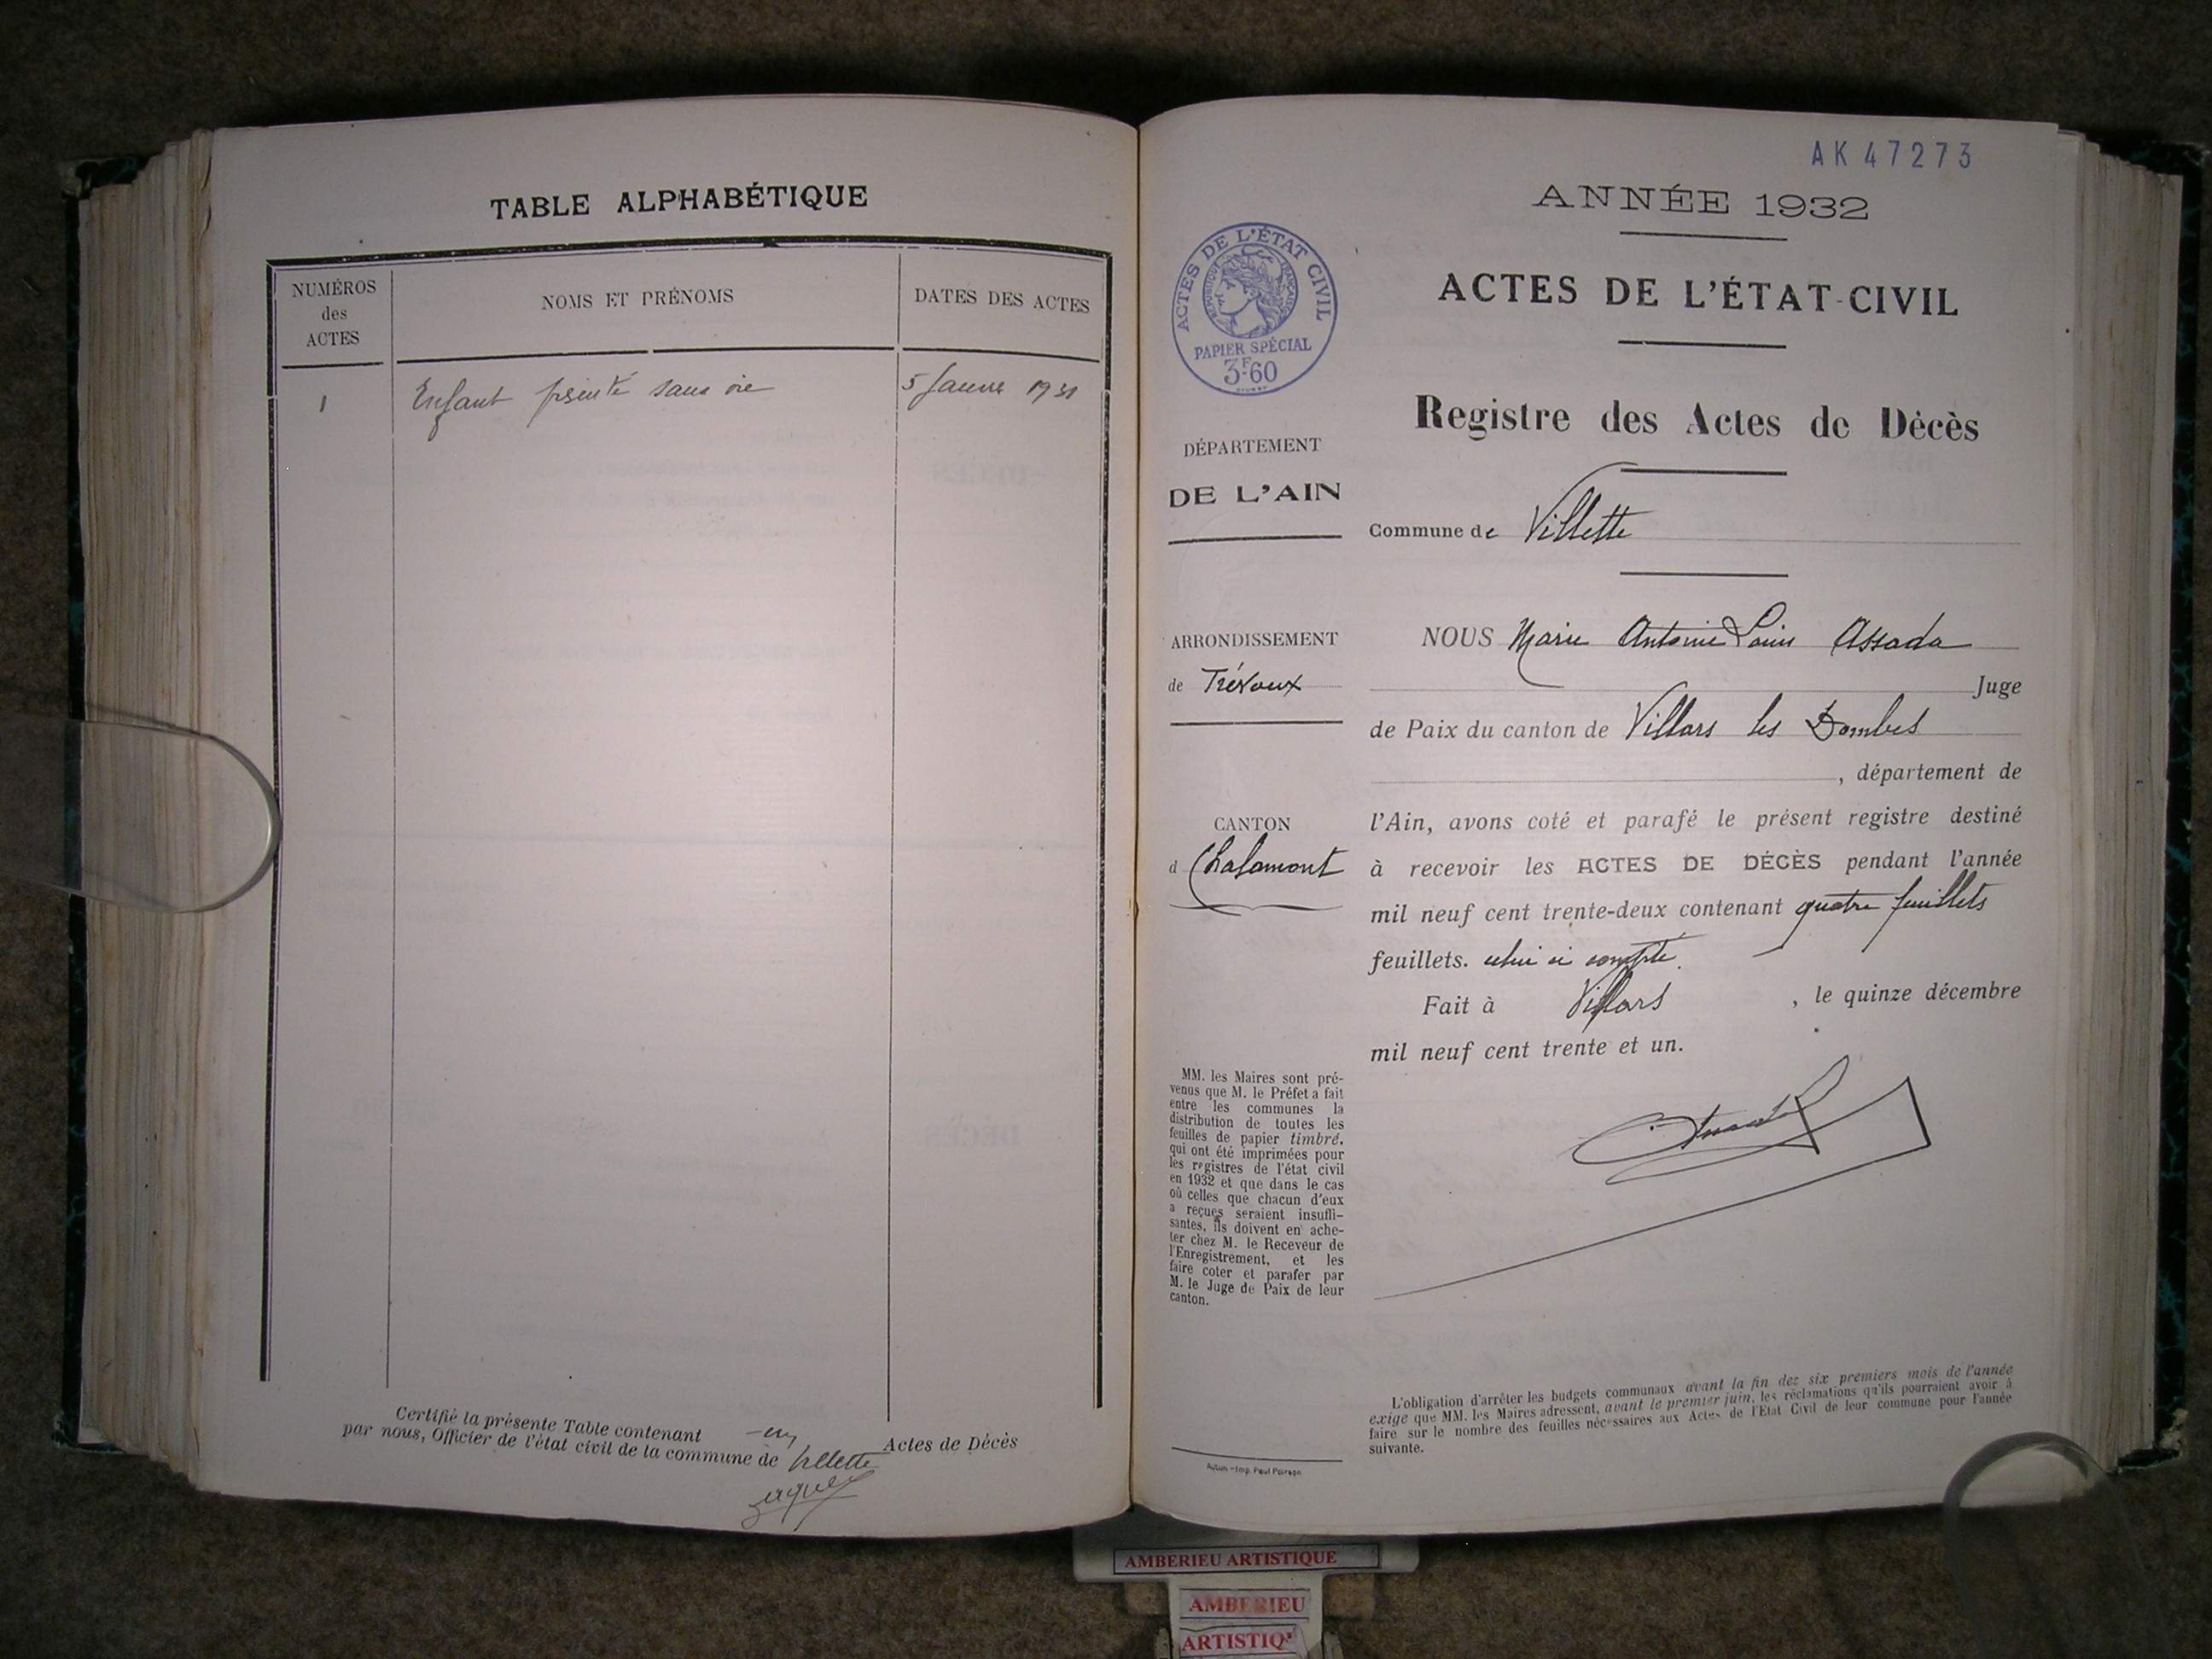 TABLE ALPHABÉTIQUE
NUMÉROS
des
ACTES
NOMS ET PRÉNOMS
DATES DES ACTES
1 Enfant présenté sans vie 5 1931
Certifié la présente Table contenant un Actes de Décès
par nous, Officier de l'état civil de la commune de Villette
AK 47273
ANNÉE 1932
ACTES DE L'ÉTAT-CIVIL
Registre des Actes de Décès
Commune de Villette
ACTES DE L'ÉTAT CIVIL
RÉPUBLIQUE FRANÇAISE
PAPIER SPÉCIAL
3F60
DÉPARTEMENT
DE L'AIN
ARRONDISSEMENT
de Trévoux
CANTON
d Chalamont
MM. les Maires sont pré-
venus que M. le Préfet a fait
entre les communes la
distribution de toutes les
feuilles de papier timbré,
qui ont été imprimées pour
les registres de l'état civil
en 1932 et que dans le cas
où celles que chacun d'eux
a reçues seraient insuffi-
santes, ils doivent en ache-
ter chez M. le Receveur de
l'Enregistrement, et les
faire coter et parafer par
M. le Juge de Paix de leur
canton.
Autun - Imp. Paul
NOUS Marie Antoine Louis Assada
Juge
de Paix du canton de Villars les Dombes
, département de
l'Ain, avons coté et parafé le présent registre destiné
à recevoir les ACTES DE DÉCÈS pendant l'année
mil neuf cent trente-deux contenant quatre feuillets
feuillets. celui ci compté.
Fait à Villars , le quinze décembre
mil neuf cent trente et un.
L'obligation d'arrêter les budgets communaux avant la fin des six premiers mois de l'année
exige que MM. les Maires adressent, avant le premier juin, les réclamations qu'ils pourraient avoir à
faire sur le nombre des feuilles nécessaires aux Actes de l'Etat Civil de leur commune pour l'année
suivante.
AMBERIEU ARTISTIQUE
AMBERIEU
ARTISTIQ